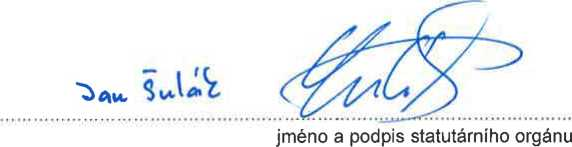 Jan Šulák
jméno a podpis statutárního orgánu